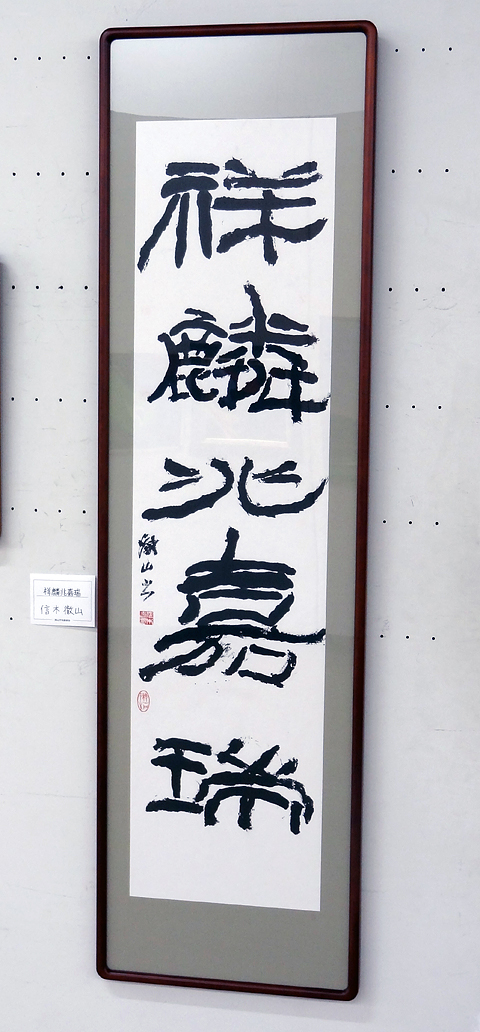 祥麟兆嘉瑞
徹山書
祥麟兆嘉瑞
信木徹山